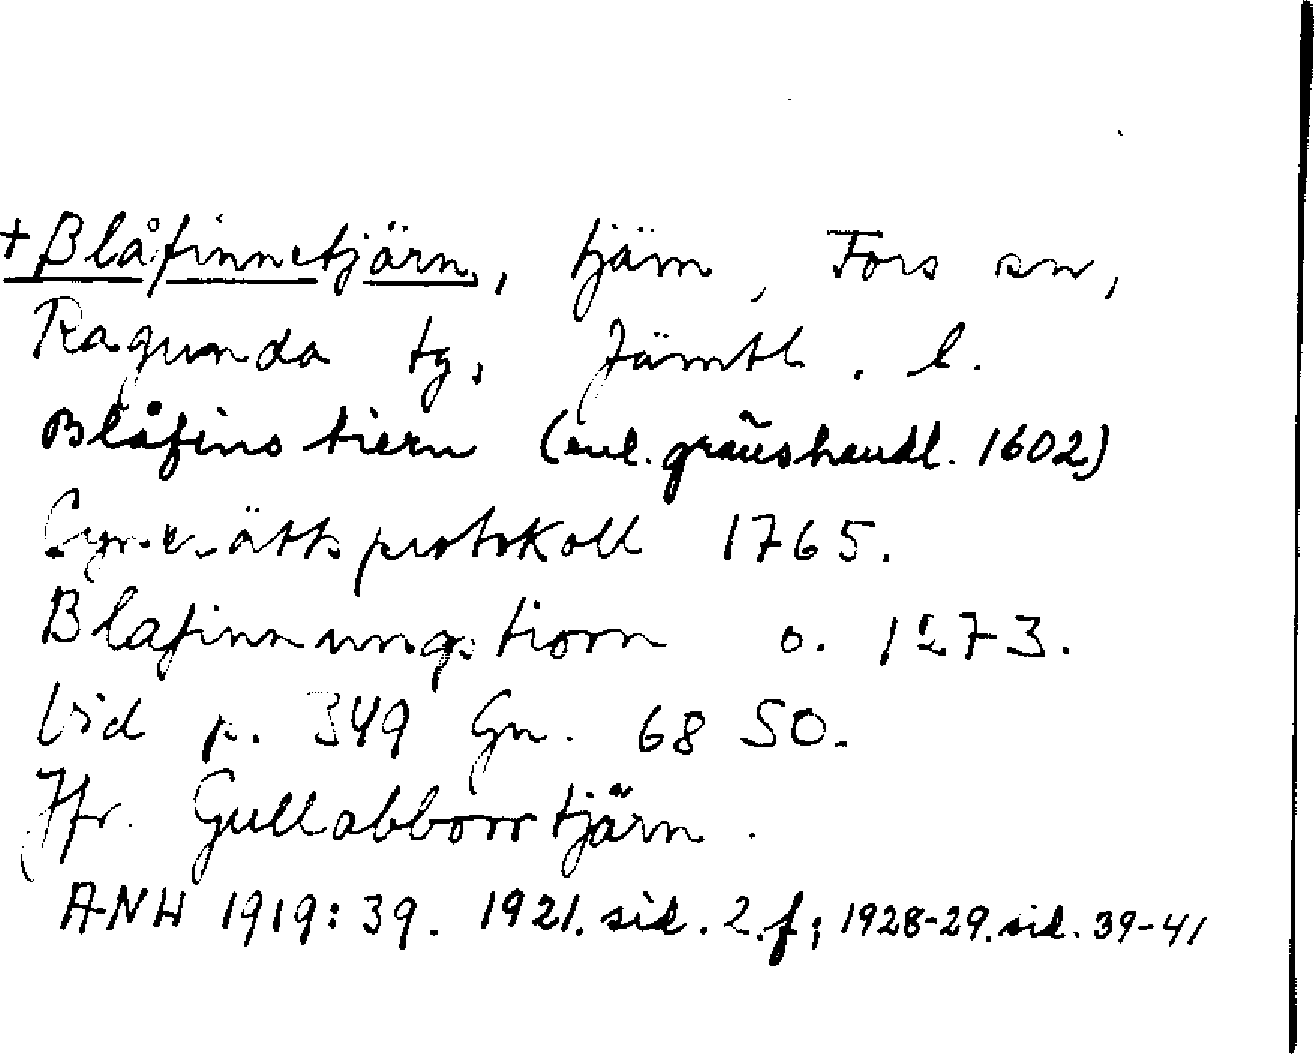 +Blåfinnetjärn, tjärn, Fors sn,
Ragunda tg, Jämtl. l.
Blåfins tiern (enl. gränshandl. 1602)
Synerättsprotokoll 1765.
Blafinnungstiorn o. 1273.
vid p. 349 Gn. 68 SO.
Jfr. Gullabborrtjärn.
ANH 1919: 39. 1921. sid. 2.f; 1928-29. sid. 39-41